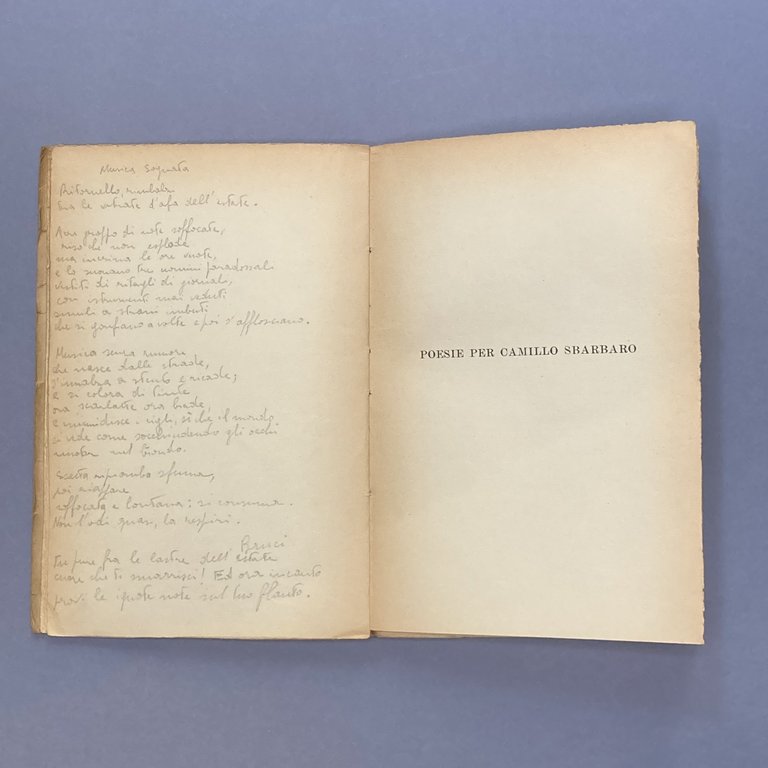 Musica Sognata
Ritornello, rimbalzi
tra le vetrate d'afa dell'estate.
Acre groppo di note soffocate,
riso che non esplode
ma incrina le ore vuote,
e lo suonano tre uomini paradossali
vestiti di ritagli di giornali,
con istrumenti mai veduti
simili a strani imbuti
che si gonfiano a volte e poi s'afflosciano.
Musica senza rumore
che nasce dalle strade,
s'innalza a stento e ricade;
e si colora di tinte
ora scarlatte ora biade,
e inumidisce i cigli, sì che il mondo
si vede come socchiudendo gli occhi
nuotar nel biondo.
Scatta ripiomba sfuma,
poi riappare
soffocata e lontana: si consuma.
Non l'odi quasi, la respiri.
Bruci
tu pure fra le lastre dell'estate
cuore che ti smarrisci! Ed ora incauto
provi le ignote note sul tuo flauto.
POESIE PER CAMILLO SBARBARO